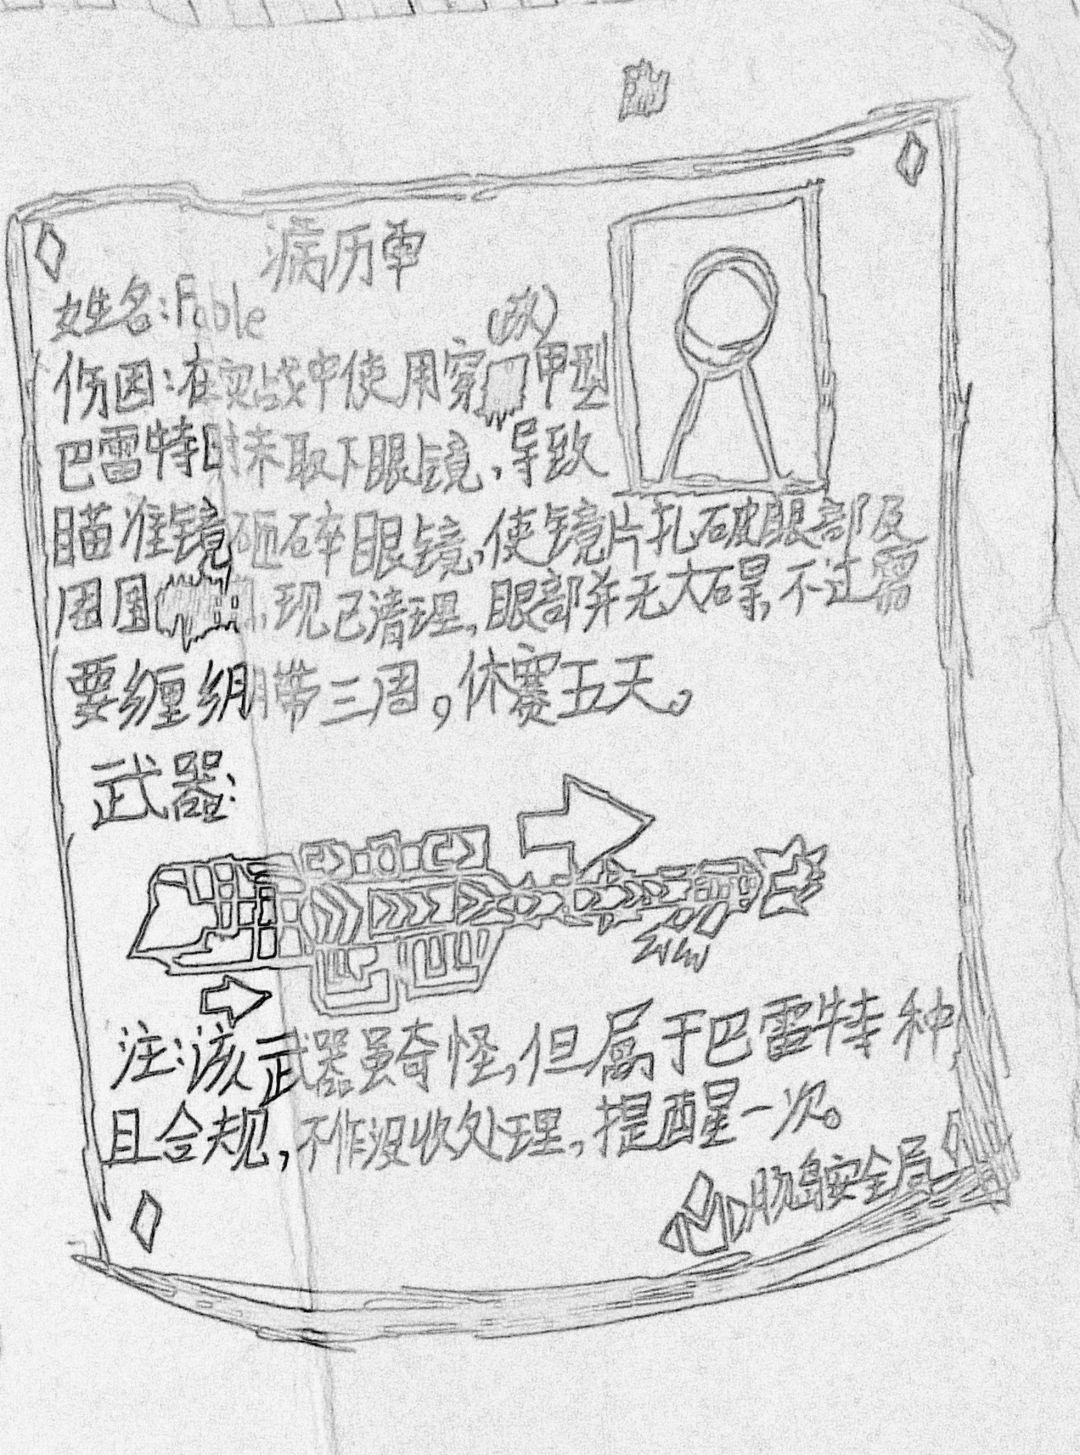 病历单
姓名:Fable
(改)
伤因:在实战中使用穿甲型
巴雷特时未取下眼镜,导致
瞄准镜砸碎眼镜,使镜片扎破眼部及
周围,现已清理,眼部并无大碍,不过需
要缠绷带三周。休赛五天。
武器:
注:该武器虽奇怪,但属于巴雷特种
且合规,不作没收处理,提醒一次。
脱岛安全局